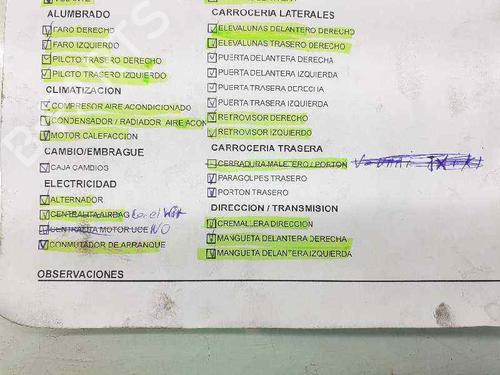 ALUMBRADO
FARO DERECHO
FARO IZQUIERDO
PILOTO TRASERO DERECHO
PILOTO TRASERO IZQUIERDO
CLIMATIZACION
COMPRESOR AIRE ACONDICIONADO
CONDENSADOR / RADIADOR AIRE ACON
MOTOR CALEFACCION
CAMBIO/EMBRAGUE
CAJA CAMBIOS
ELECTRICIDAD
ALTERNADOR
CENTRALITA AIRBAG Con el Kit
CENTRALITA MOTOR UCE NO
CONMUTADOR DE ARRANQUE
OBSERVACIONES
CARROCERIA LATERALES
ELEVALUNAS DELANTERO DERECHO
ELEVALUNAS TRASERO DERECHO
PUERTA DELANTERA DERECHA
PUERTA DELANTERA IZQUIERDA
PUERTA TRASERA DERECHA
PUERTA TRASERA IZQUIERDA
RETROVISOR DERECHO
RETROVISOR IZQUIERDO
CARROCERIA TRASERA
CERRADURA MALETERO / PORTON
PARAGOLPES TRASERO
PORTON TRASERO
DIRECCION / TRANSMISION
CREMALLERA DIRECCION
MANGUETA DELANTERA DERECHA
MANGUETA DELANTERA IZQUIERDA